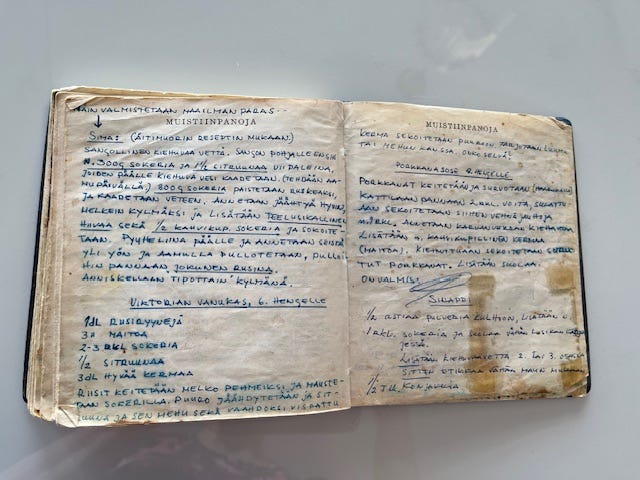 NÄIN VALMISTETAAN MAAILMAN PARAS...
MUISTIINPANOJA
SIMA: (ÄITIMUORIN RESEPTIN MUKAAN.)
SANGOLLINEN KIEHUVAA VETTÄ. SANGON POHJALLE ENSIN
N. 300G SOKERIA JA 1½ SITRUUNAA VIIPALEINA,
JOIDEN PÄÄLLE KIEHUVA VESI KAADETAAN. (TEHDÄÄN AA-
MUPÄIVÄLLÄ) 800G SOKERIA PAISTETAAN RUSKEAKSI,
JA KAADETAAN VETEEN. ANNETAAN JÄÄHTYÄ HYVIN,
MELKEIN KYLMÄKSI JA LISÄTÄÄN TEELUSIKALLINEN
HIIVAA SEKÄ ½ KAHVIKUP. SOKERIA JA SEKOITE
TAAN. PYYHELIINA PÄÄLLE JA ANNETAAN SEISTÄ
YLI YÖN JA AAMULLA PULLOTETAAN, PULLOI-
HIN PANNAAN JOKUNEN RUSINA.
ANNISKELLAAN TIPOTTAIN KYLMÄNÄ.
VIKTORIAN VANUKAS, 6. HENGELLE
1DL RIISIRYYNEJÄ
3 " MAITOA
2-3 RKL SOKERIA
½ SITRUUNAA
3DL HYVÄÄ KERMAA
RIISIT KEITETÄÄN MELKO PEHMEIKSI, JA MAUSTE-
TAAN SOKERILLA. PUURO JÄÄHDYTETÄÄN JA SIT-
RUUNA JA SEN MEHU SEKÄ VAAHDOKSI VISPATTU
MUISTIINPANOJA
KERMA SEKOITETAAN PUUROON TARJOTAAN
TAI MEHUN KANSSA. OLIKO SELVÄ?
PORKKANASOSE 2. HENGELLE
PORKKANAT KEITETÄÄN JA SURVOTAAN
KATTILAAN PANNAAN 2 RKL. VOITA, SULATTU-
AAN SEKOITETAAN SIIHEN VEHNÄJAUHOJA
RKL. ANNETAAN KIEHAHTAA
LISÄTÄÄN KAHVIKUPILLINEN KERMAA
(MAITOA). KIEHUTTUAAN SEKOITETAAN SURVO
TUT PORKKANAT. LISÄTÄÄN SUOLAA.
ON VALMIS!
SINAPPI
½ ASTIAA PULVERIA KULHOON, LISÄTÄÄN
1 RKL. SOKERIA JA SUOLAA VÄHÄN LUSIKAN
JESSÄ.
LISÄTÄÄN KIEHUVAA VETTÄ 2. TAI 3. OSASSA
SITTEN ETIKKAA VÄHÄN MAUN MUKAAN
½ TL. KONJAKKIA